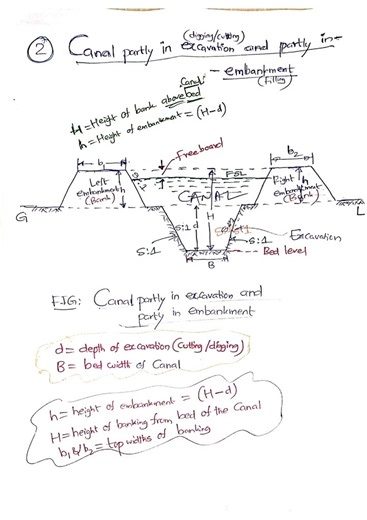 (digging/cutting)
② Canal partly in excavation and partly in-
- embankment
(filling)
Canal
H = Height of bank above bed
h = Height of embankment = (H-d)
b₁
Freeboard
b₂
FSL
Left
embankment
(Bank)
h
CANAL
Right
embankment
(Bank)
h
G
L
S:1
d
H
S:1
Excavation
B
Bed level
FIG: Canal partly in excavation and
partly in embankment
d = depth of excavation (cutting/digging)
B = bed width of Canal
h = height of embankment = (H-d)
H = height of banking from bed of the Canal
b₁ & b₂ = top widths of banking